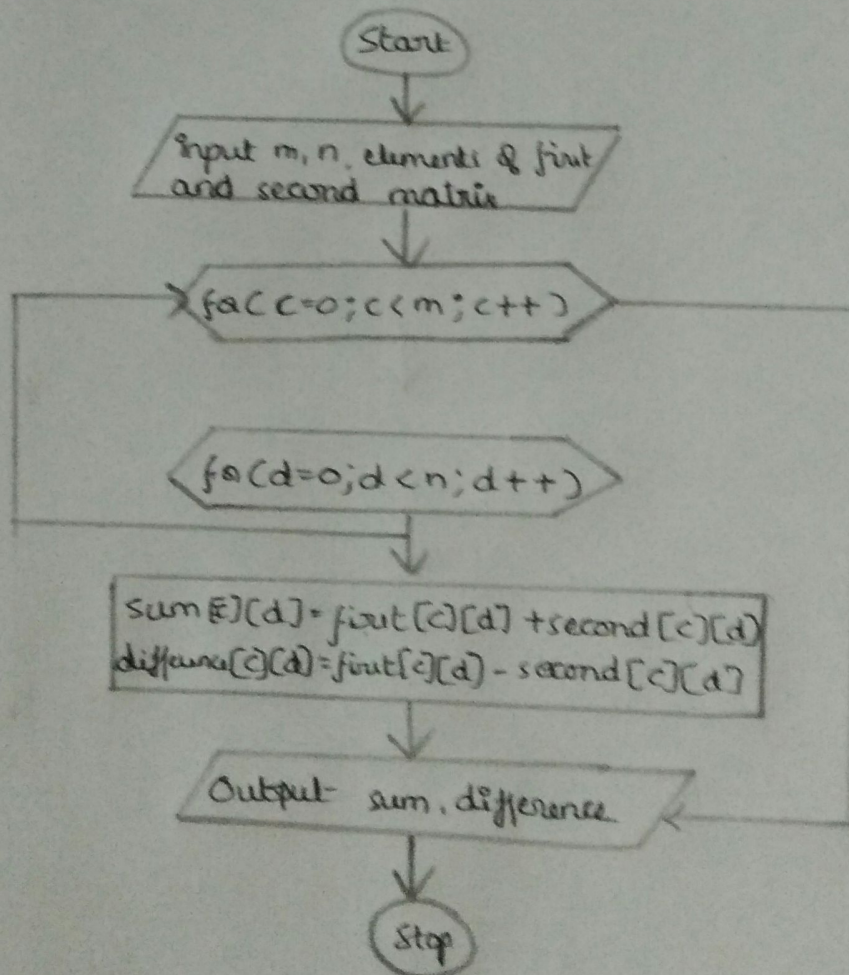 Start
input m, n, elements of first
and second matrix
for(c=0;c<m;c++)
for(d=0;d<n;d++)
sum[c][d]=first[c][d]+second[c][d]
difference[c][d]=first[c][d]-second[c][d]
Output sum, difference
Stop